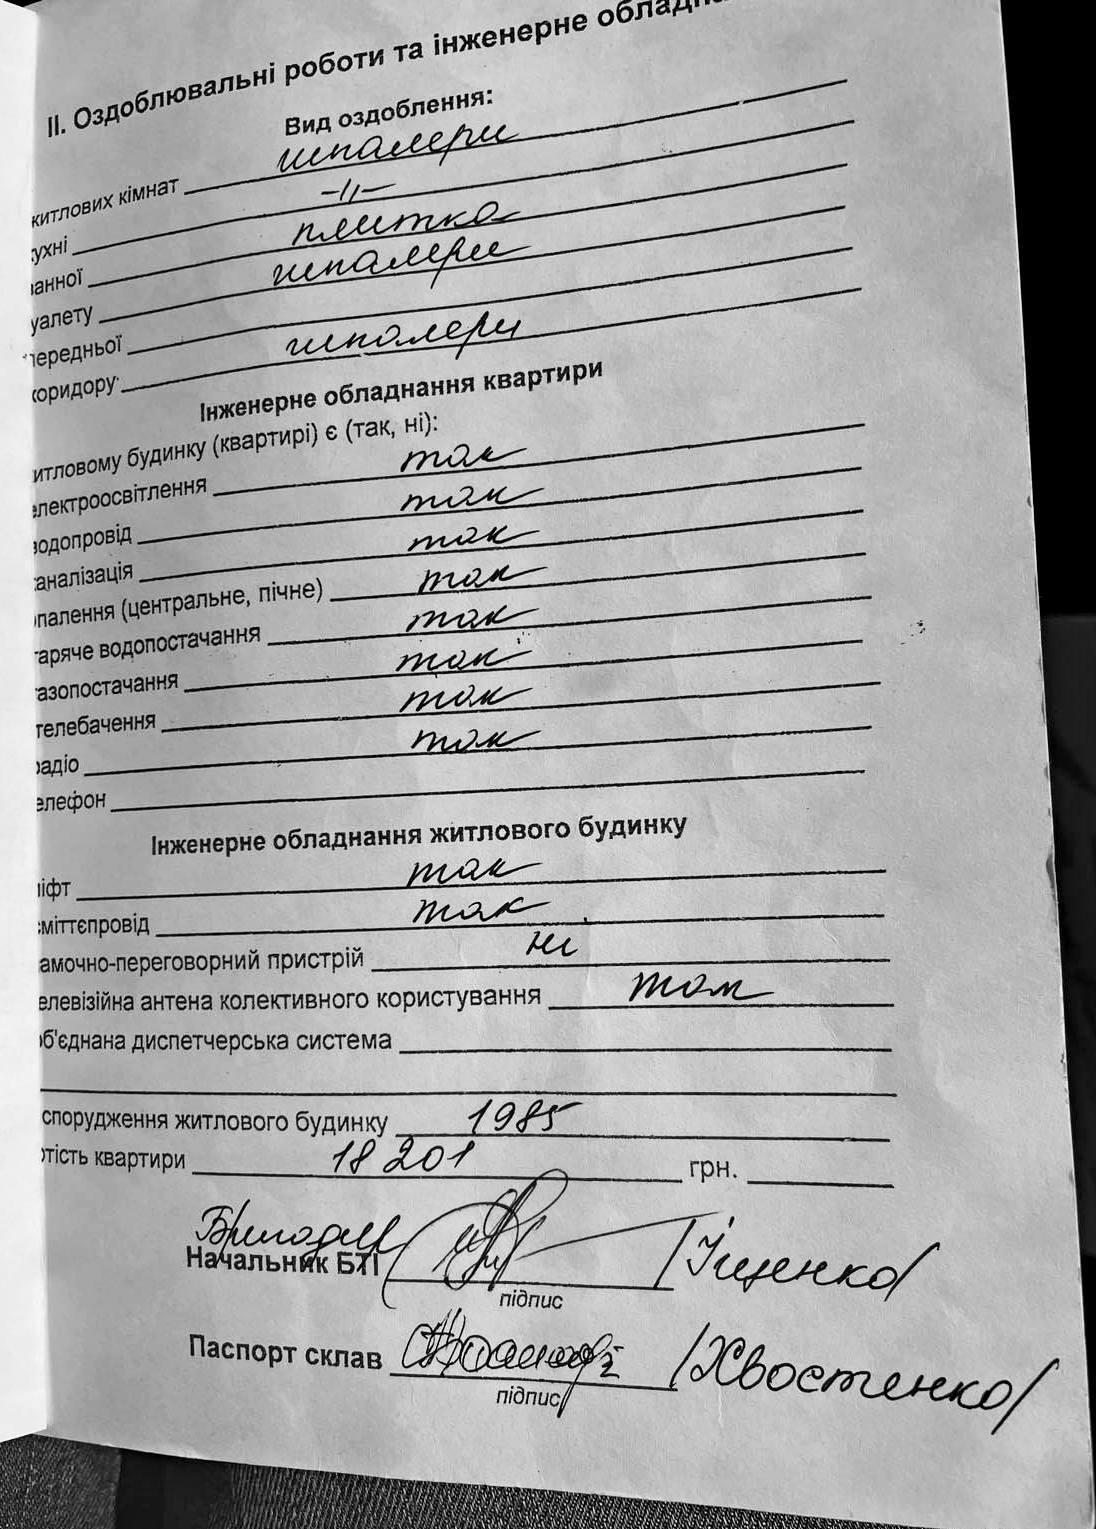 II. Оздоблювальні роботи та інженерне обладна
Вид оздоблення:
житлових кімнат шпалери
кухні -//-
ванної плитка
туалету шпалери
передньої
коридору шпалери
Інженерне обладнання квартири
итловому будинку (квартирі) є (так, ні):
електроосвітлення так
водопровід так
каналізація так
опалення (центральне, пічне) так
гаряче водопостачання так
газопостачання так
телебачення так
радіо так
елефон
Інженерне обладнання житлового будинку
ліфт так
сміттєпровід так
замочно-переговорний пристрій ні
елевізійна антена колективного користування так
об'єднана диспетчерська система
спорудження житлового будинку 1985
ртість квартири 18 201 грн.
Начальник БТІ /Іщенко/
підпис
Паспорт склав /Хвостенко/
підпис